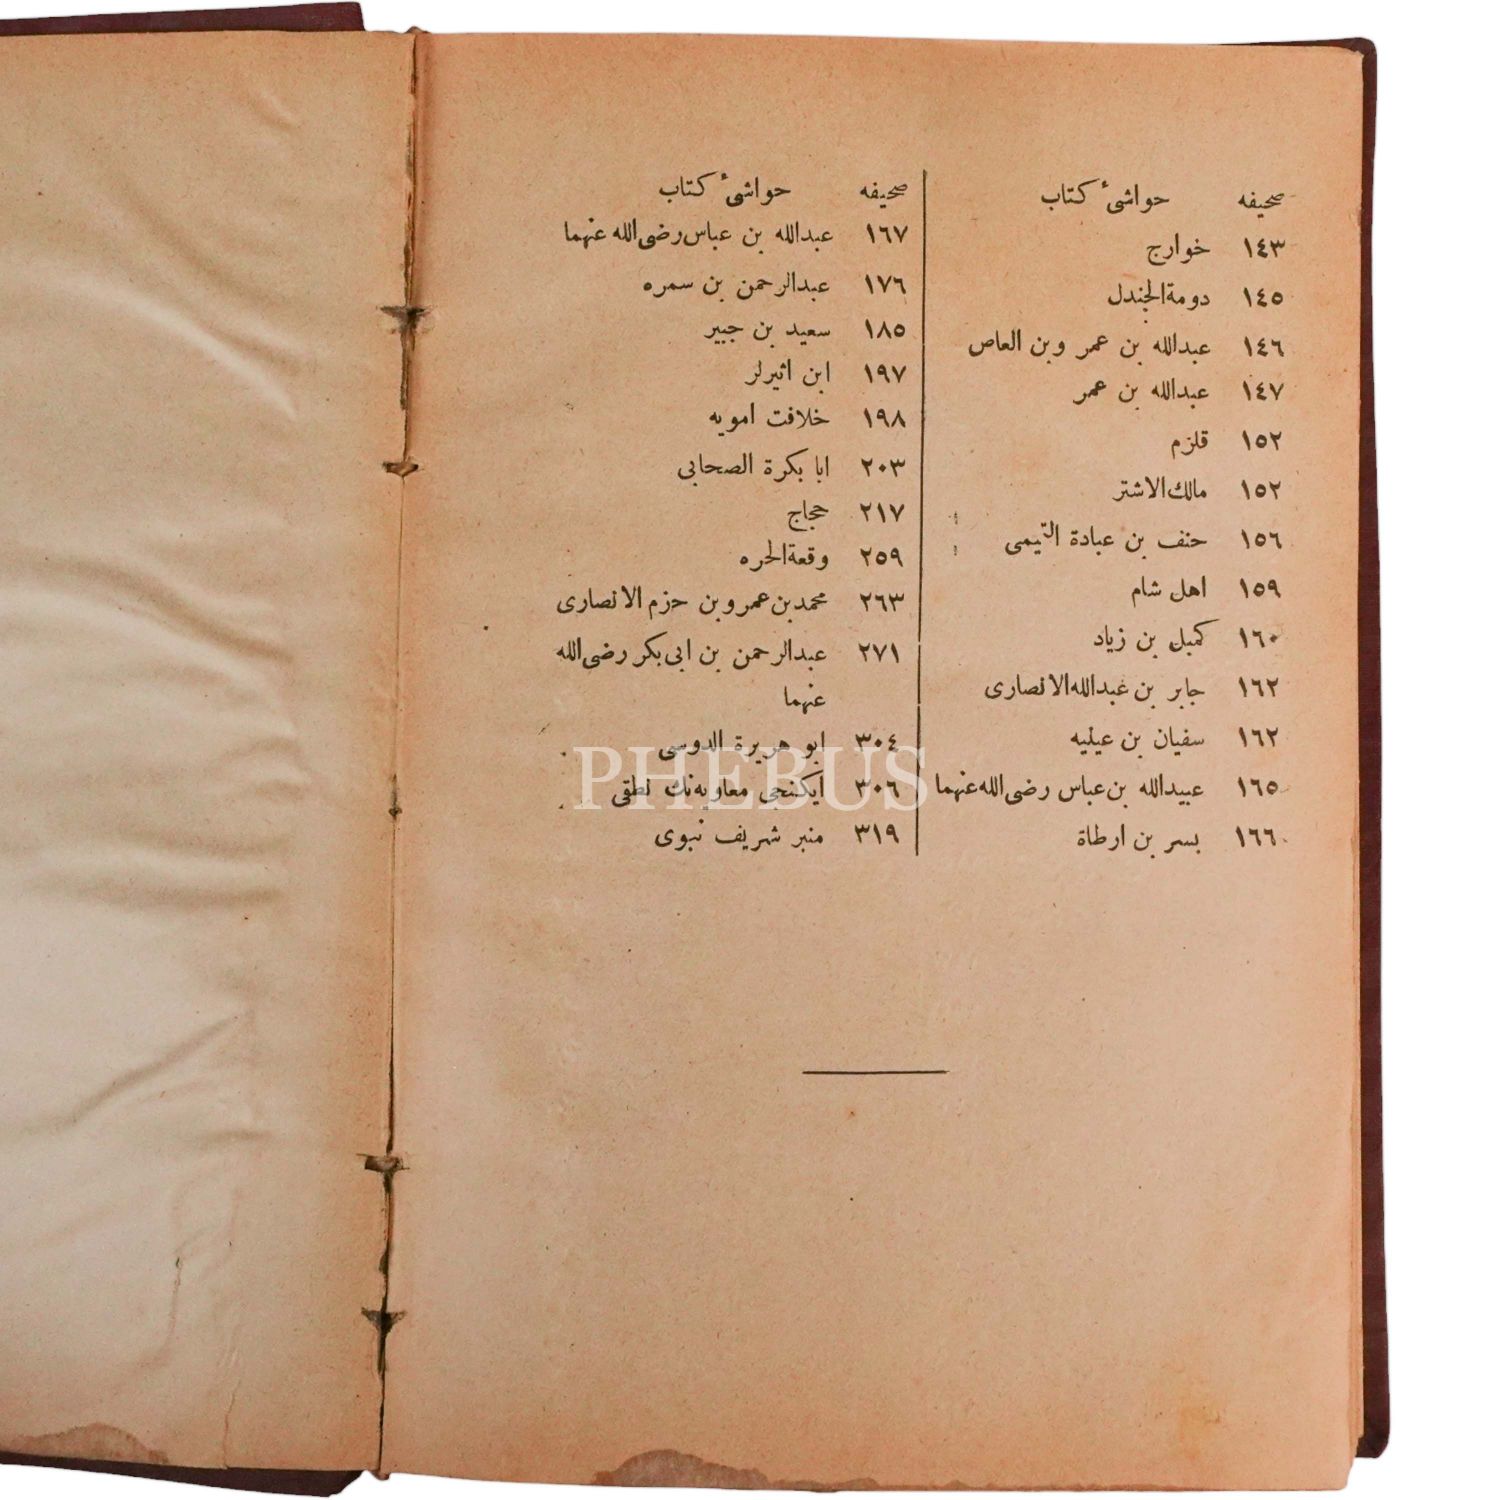 صحيفه حواشیٔ كتاب
١٤٣ خوارج
١٤٥ دومةالجندل
١٤٦ عبدالله بن عمر وبن العاص
١٤٧ عبدالله بن عمر
١٥٢ قلزم
١٥٢ مالك‌الاشتر
١٥٦ حنف بن عبادة التيمى
١٥٩ اهل شام
١٦٠ كميل بن زياد
١٦٢ جابر بن عبدالله‌الانصارى
١٦٢ سفيان بن عيليه
١٦٥ عبيدالله بن‌عباس رضى‌الله‌عنهما
١٦٦ بسر بن ارطاة
صحيفه حواشیٔ كتاب
١٦٧ عبدالله بن عباس‌رضى‌الله عنهما
١٧٦ عبدالرحمن بن سمره
١٨٥ سعيد بن جبير
١٩٧ ابن اثيرلر
١٩٨ خلافت امويه
٢٠٣ ابا بكرة الصحابى
٢١٧ حجاج
٢٥٩ وقعةالحره
٢٦٣ محمدبن‌عمروبن حزم الانصارى
٢٧١ عبدالرحمن بن ابى‌بكر رضى‌الله
عنهما
٣٠٤ ابو هريرة الدوسى
٣٠٦ ايكنجى معاويه‌نك نطقى
٣١٩ منبر شريف نبوى
PHEBUS